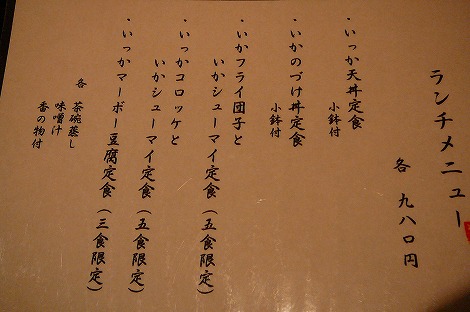 ランチメニュー
各 九八〇円
・いっか天丼定食
小鉢付
・いかのづけ丼定食
小鉢付
・いかフライ団子と
いかシューマイ定食(五食限定)
・いっかコロッケと
いかシューマイ定食(五食限定)
・いっかマーボー豆腐定食(三食限定)
各 茶碗蒸し
味噌汁
香の物付